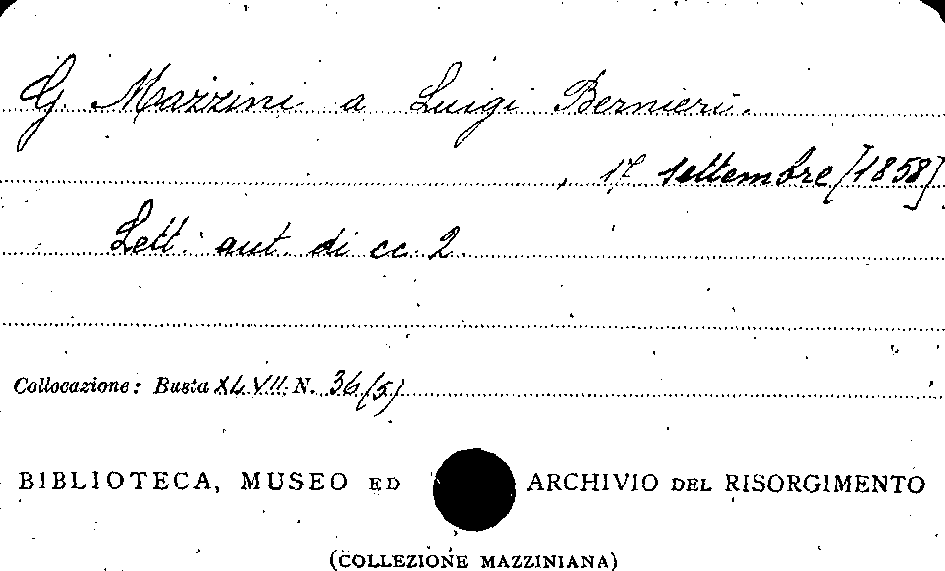 G. Mazzini a Luigi Bernieri.
, 17 settembre [1858]
Lett. aut. di cc. 2.
Collocazione: Busta XLVII N. 36 (5)
BIBLIOTECA, MUSEO ED ARCHIVIO DEL RISORGIMENTO
(COLLEZIONE MAZZINIANA)